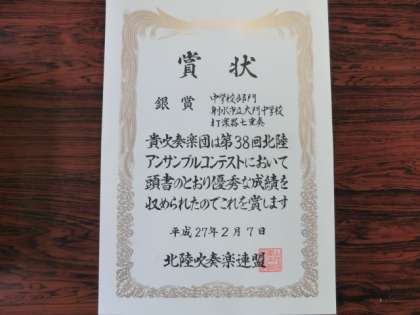 賞状
銀賞
中学校部門
射水市立大門中学校
打楽器七重奏
貴吹奏楽団は第38回北陸
アンサンブルコンテストにおいて
頭書のとおり優秀な成績を
収められたのでこれを賞します
平成27年2月7日
北陸吹奏楽連盟